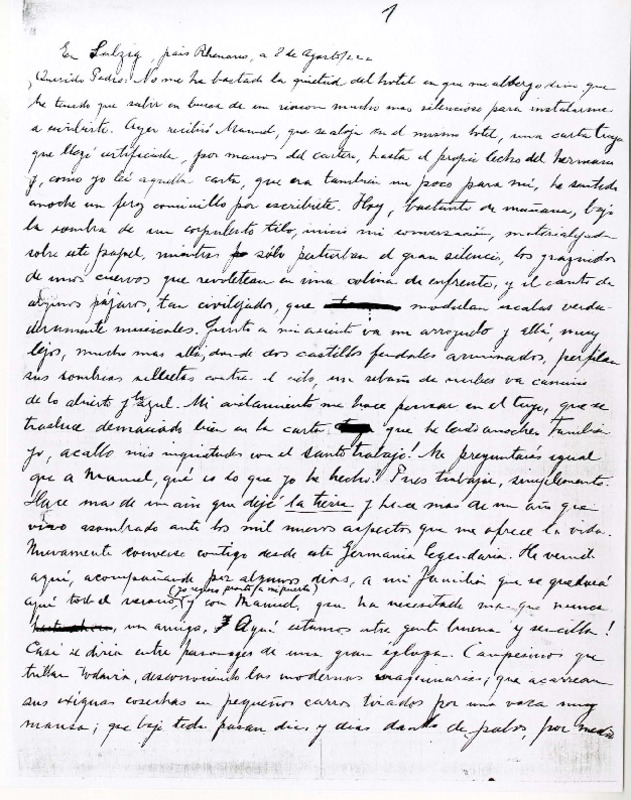 1
En Sulzig, país Rhenano, a 8 de Agosto/
Querido Pedro: No me ha bastado la quietud del hotel en que me albergo sino que
he tenido que salir en busca de un rincon mucho mas silencioso para instalarme
a escribirte. Ayer recibió Manuel, que se aloja en el mismo hotel, una carta tuya
que llegó certificada, por manos del cartero, hasta el propio lecho del hermano
y, como yo leí aquella carta, que era tambien un poco para mí, he sentido
anoche un feroz cominillo por escribirte. Hoy, bastante de mañana, bajo
la sombra de un corpulento tilo, inicio mi conversación, materializada
sobre este papel, mientras sólo perturban el gran silencio, los graznidos
de unos cuervos que revolotean en una colina de enfrente, y el canto de
algunos pájaros, tan civilizados, que modulan escalas verda-
deramente musicales. Junto a mi asiento va un arroyuelo y allá, muy
lejos, mucho mas allá, donde dos castillos feudales arruinados, perfilan
sus sombrías siluetas contra el cielo, un rebaño de nubes va camino
de lo abierto y lo azul. Mi aislamiento me hace pensar en el tuyo, que se
trasluce demasiado bien en la carta que he leído anoche. Tambien
yo, acallo mis inquietudes con el santo trabajo! Me preguntarás igual
que a Manuel, qué es lo que yo he hecho? Pues trabajar, simplemente.
Hace mas de un año que dejé la tierra y hace mas de un año que
vivo asombrado ante los mil nuevos aspectos que me ofrece la vida.
Nuevamente converso contigo desde esta Germania legendaria. He venido
aquí, acompañando por algunos días, a mi familia que se quedará
aquí todo el verano, (yo regreso pronto a mi puesto) y con Manuel, que ha necesitado mas que nunca
un amigo. Aquí estamos entre gente buena y sencilla!
Casi se diría entre personajes de una gran égloga. Campesinos que
trillan todavía, desconociendo las modernas maquinarias; que acarrean
sus exiguas cosechas en pequeños carros tirados por una vaca muy
mansa; que bajo todo pasan dias y dias dando de palos, por medio